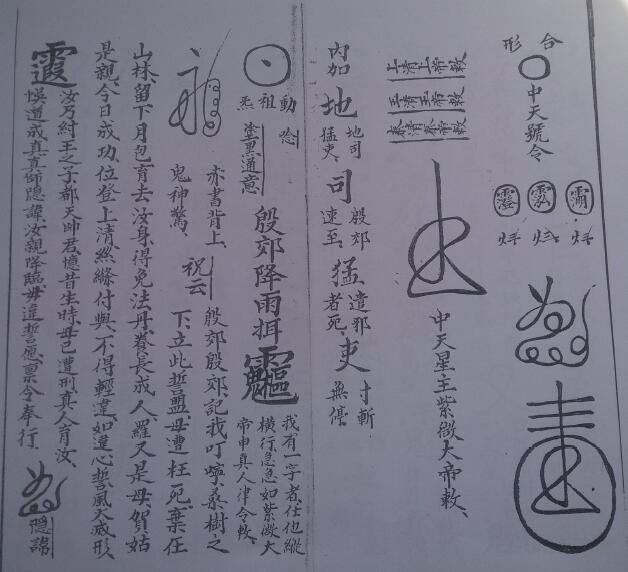 合形
中天號令
上清上帝敕
玉清玉帝敕
泰清泰帝敕
中天星主紫微大帝敕、
內加 地 地司猛吏、司 殷郊速至、猛 遣邪者死、吏 寸斬無停
動祖炁 念
塗黑通意
殷郊降雨
我有一字者任他縱
橫行急急如紫微大
帝申真人律令敕、
赤書背上、
鬼神驚、
祝云 殷郊殷郊、記我叮嚀、桑樹之
下、立此誓盟、母遭枉死、棄在
山林、留下月包育去汝身、得免法丹、養長成人、羅叉是母、賀姑
是親、今日成功、位登上清、絲絛付與、不得輕違、如違心誓、風火滅形、
汝乃紂王之子、都天帥君、憶昔生時、母已遭刑、真人育汝、
悞道成真、真師隱諱、汝親降臨、毋違誓愿、稟令奉行、
隱諱